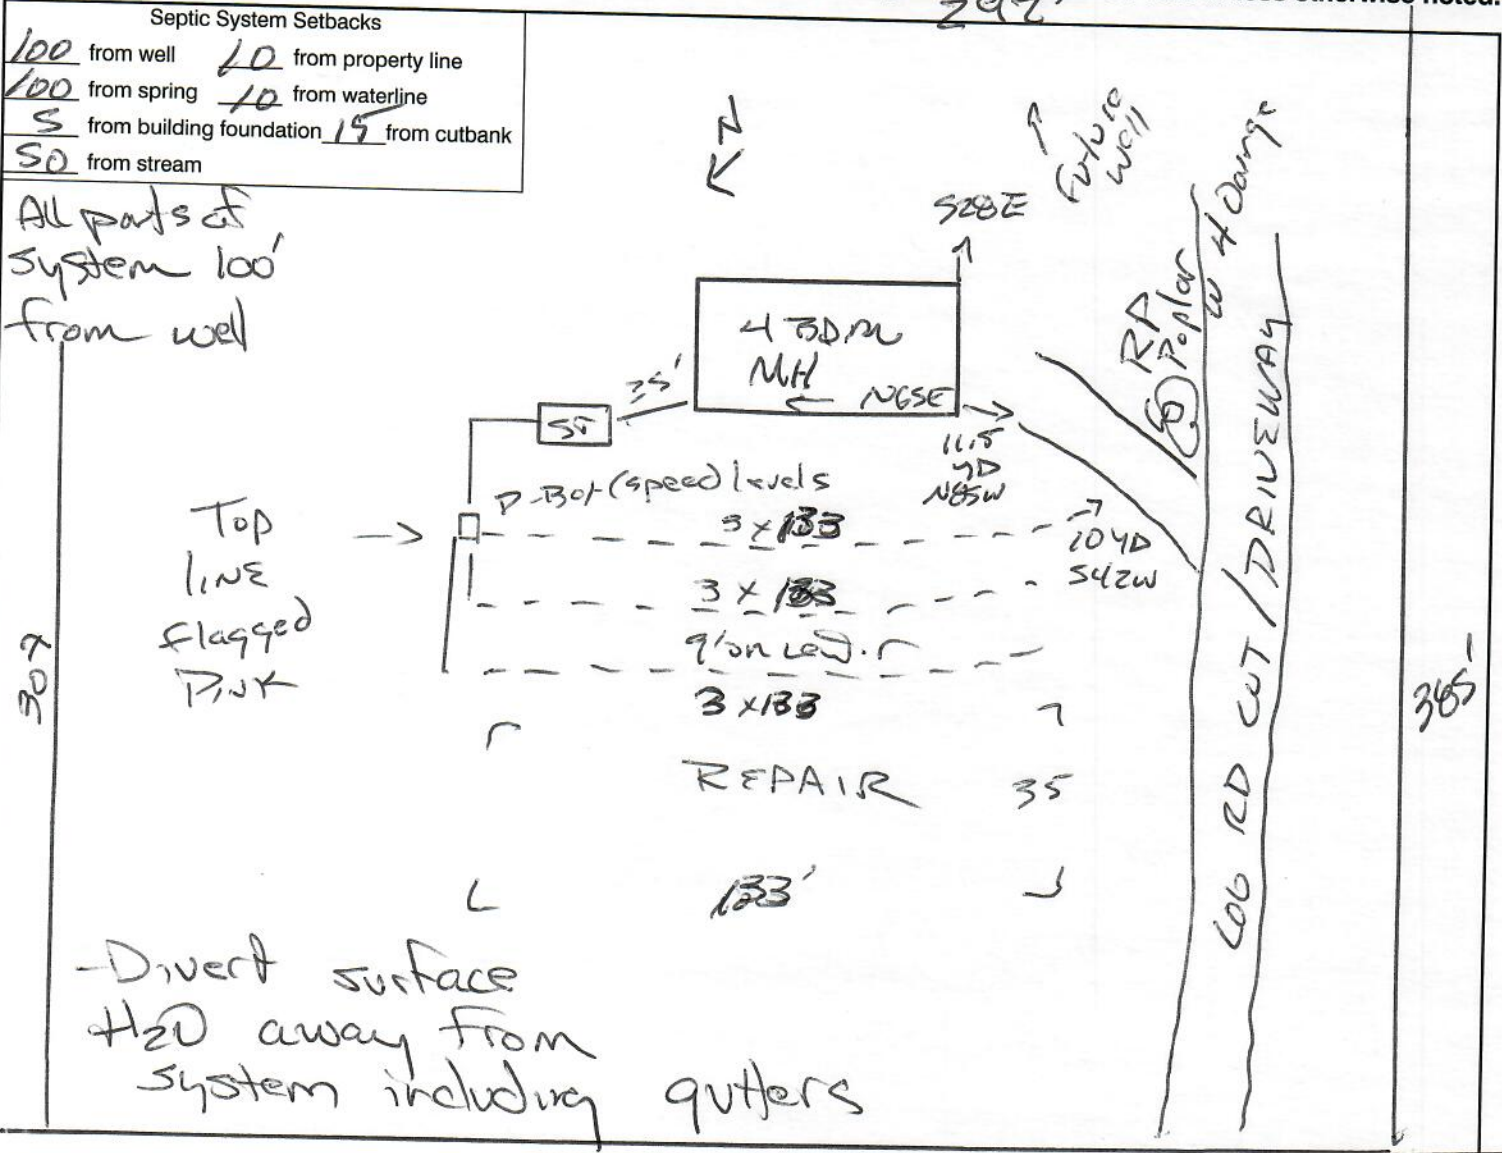 292'
otherwise noted.
Septic System Setbacks
100 from well 10 from property line
100 from spring 10 from waterline
5 from building foundation 15 from cutbank
50 from stream
All parts of
system 100'
from well
N
S28E
Future
well
RP
Poplar
w H Oarnge
4 BDRM
MH
N65E
25'
ST
11.5
YD
N85W
D-Box (speed) levels
Top
line
flagged
Pink
3 x 133
20 YD
S42W
3 x 133
9' on cen.
3 x 133
307
385'
LOG RD CUT / DRIVEWAY
REPAIR 35
133'
-Divert surface
H2O away from
system including gutters